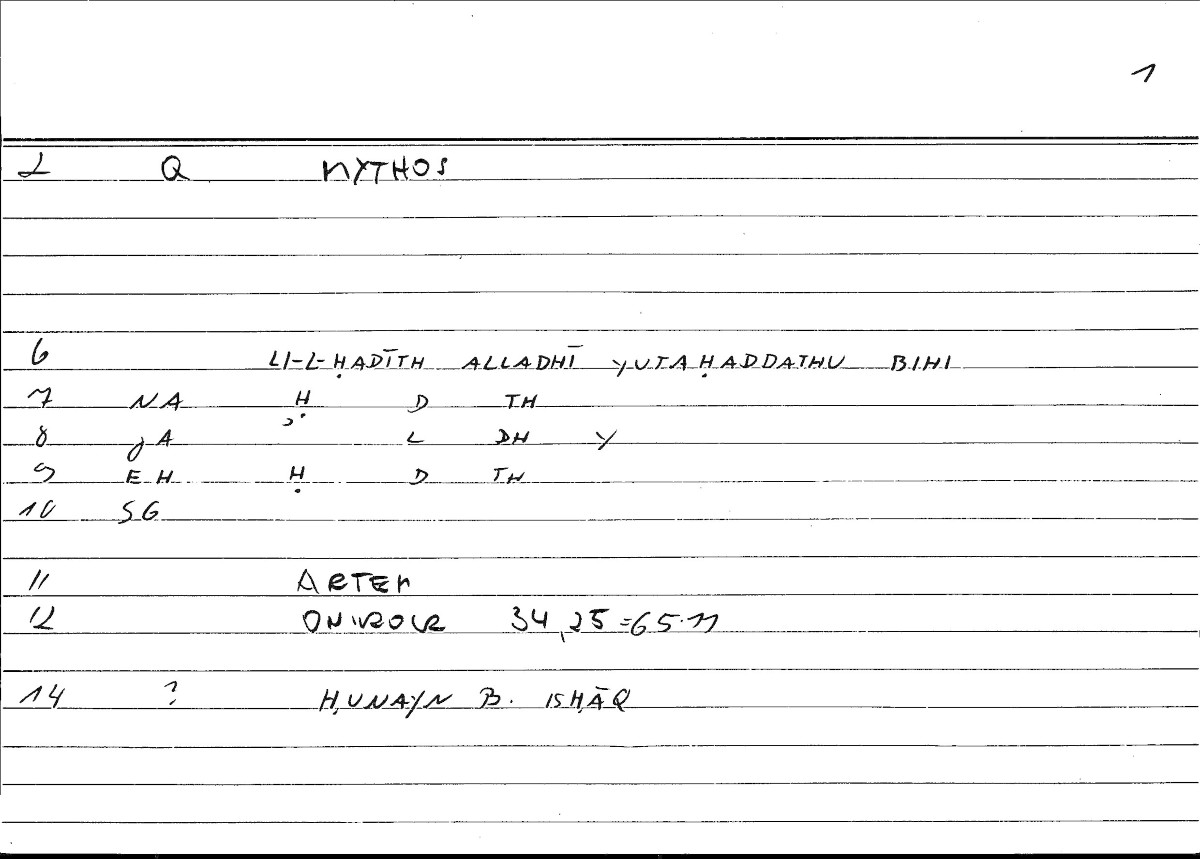 1
2 Q MYTHOS
6 LI-L-ḤADĪTH ALLADHĪ YUTAḤADDATHU BIHI
7 NA Ḥ D TH
8 JA ʾ L DH Y
9 EH Ḥ D TH
10 SG
11 ARTEM
12 ONIROCR 34,25=65.11
14 ? ḤUNAYN B. ISḤĀQ